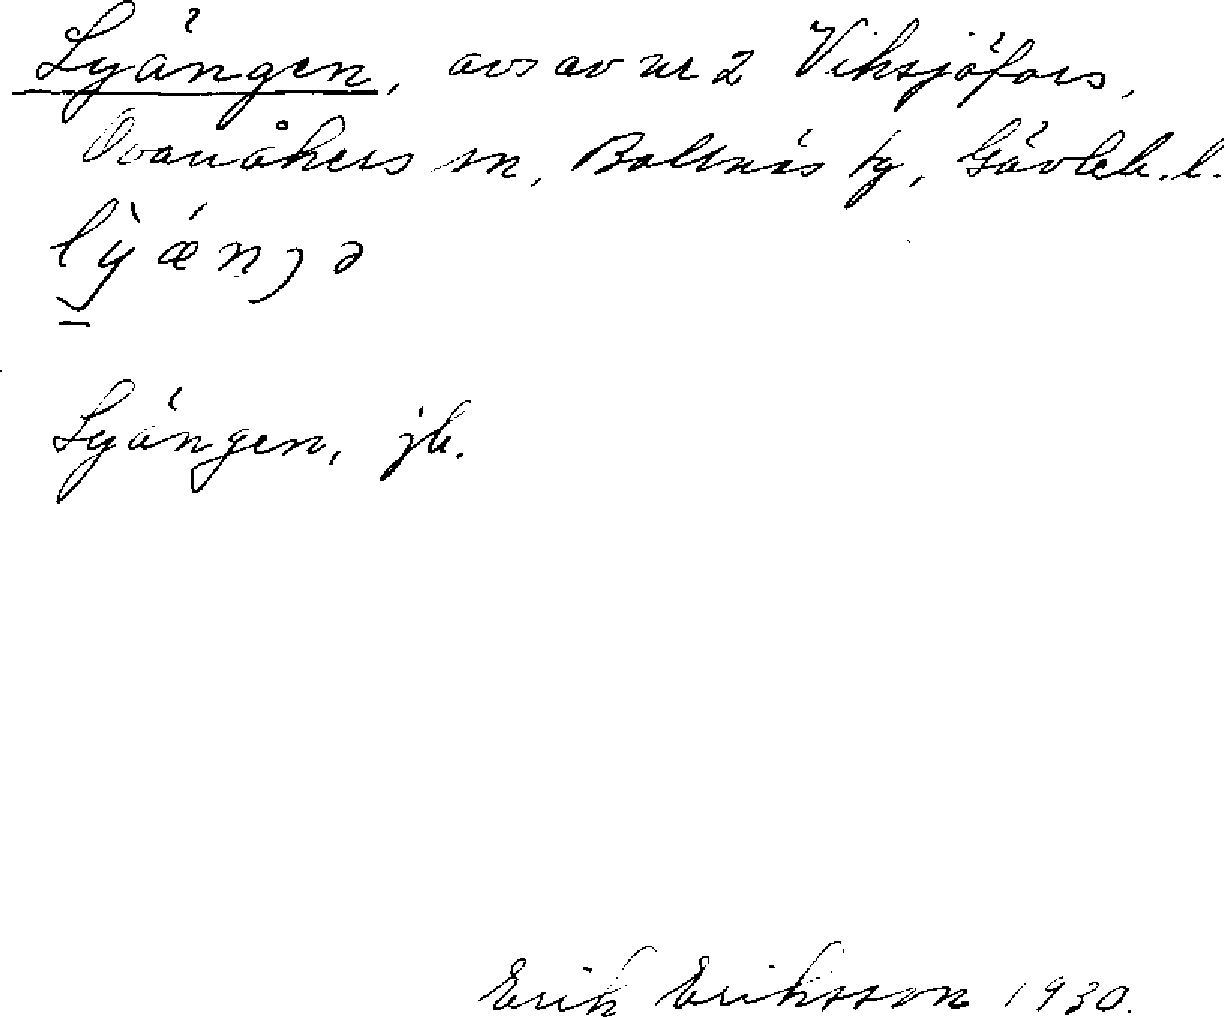 Lyängen, avs av nr 2 Viksjöfors,
Ovanåkers sn, Bollnäs tg, Gävleb. l.
Lyängen, jb.
Erik Eriksson 1930.